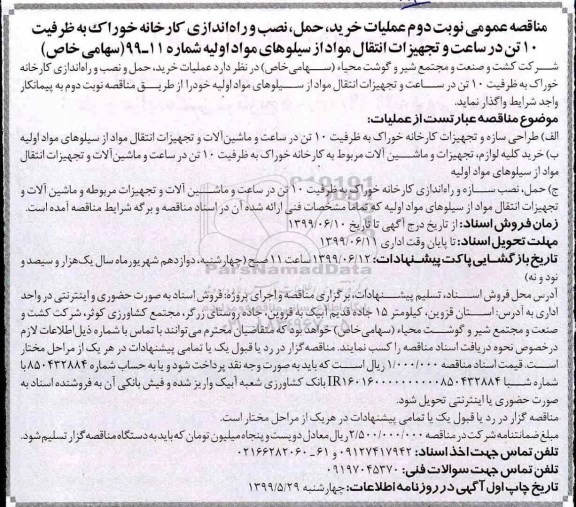 مناقصه عمومی نوبت دوم عملیات خرید، حمل، نصب و راه‌اندازی کارخانه خوراک به ظرفیت
۱۰ تن در ساعت و تجهیزات انتقال مواد از سیلوهای مواد اولیه شماره ۱۱-۹۹ (سهامی خاص)
شرکت کشت و صنعت و مجتمع شیر و گوشت محیاء (سهامی خاص) در نظر دارد عملیات خرید، حمل و نصب و راه‌اندازی کارخانه
خوراک به ظرفیت ۱۰ تن در ساعت و تجهیزات انتقال مواد از سیلوهای مواد اولیه خود را از طریق مناقصه نوبت دوم به پیمانکار
واجد شرایط واگذار نماید.
موضوع مناقصه عبارتست از عملیات:
الف) طراحی سازه و تجهیزات کارخانه خوراک به ظرفیت ۱۰ تن در ساعت و ماشین‌آلات و تجهیزات انتقال مواد از سیلوهای مواد اولیه
ب) خرید کلیه لوازم، تجهیزات و ماشین آلات مربوط به کارخانه خوراک به ظرفیت ۱۰ تن در ساعت و ماشین‌آلات و تجهیزات انتقال
مواد از سیلوهای مواد اولیه
ج) حمل، نصب سازه و راه‌اندازی کارخانه خوراک به ظرفیت ۱۰ تن در ساعت و ماشین آلات و تجهیزات مربوطه و ماشین آلات و
تجهیزات انتقال مواد از سیلوهای مواد اولیه که تماماً مشخصات فنی ارائه شده آن در اسناد مناقصه و برگه شرایط مناقصه آمده است.
زمان فروش اسناد: از تاریخ درج آگهی تا تاریخ ۱۳۹۹/۰۶/۱۰
مهلت تحویل اسناد: تا پایان وقت اداری ۱۳۹۹/۰۶/۱۱
تاریخ بازگشایی پاکت پیشنهادات: ۱۳۹۹/۰۶/۱۲ ساعت ۱۱ صبح (چهارشنبه، دوازدهم شهریورماه سال یک‌هزار و سیصد و
نود و نه)
ParsNamadData
آدرس محل فروش اسناد، تسلیم پیشنهادات، برگزاری مناقصه و اجرای پروژه: فروش اسناد به صورت حضوری و اینترنتی در واحد
اداری به آدرس: استان قزوین، کیلومتر ۱۵ جاده قدیم آبیک به قزوین، جاده روستای زرگر، مجتمع کشاورزی کوثر، شرکت کشت و
صنعت و مجتمع شیر و گوشت محیاء (سهامی خاص) خواهد بود که متقاضیان محترم می‌توانند با تماس با شماره ذیل اطلاعات لازم
درخصوص نحوه دریافت اسناد مناقصه را کسب نمایند. مناقصه گزار در رد یا قبول یک یا تمامی پیشنهادات در هر یک از مراحل مختار
است. قیمت اسناد مناقصه ۱/۰۰۰/۰۰۰ ریال است که باید به صورت وجه نقد پرداخت شود و یا به حساب شماره ۸۵۰۴۳۲۸۸۴ با
شماره شبا بانک کشاورزی شعبه آبیک واریز شده و فیش بانکی آن به فروشنده اسناد به
صورت حضوری یا اینترنتی تحویل شود.
مناقصه گزار در رد یا قبول یک یا تمامی پیشنهادات در هر یک از مراحل مختار است.
مبلغ ضمانتنامه شرکت در مناقصه ۲/۵۰۰/۰۰۰/۰۰۰ ریال معادل دویست و پنجاه میلیون تومان که باید به دستگاه مناقصه گزار تسلیم شود.
تلفن تماس جهت اخذ اسناد: ۰۹۱۲۷۴۱۷۹۴۲ و ۶۱-۰۲۱۶۶۲۸۲۰۶۰
تلفن تماس جهت سوالات فنی: ۰۹۱۹۷۰۴۵۳۷۰
تاریخ چاپ اول آگهی در روزنامه اطلاعات: چهارشنبه ۱۳۹۹/۵/۲۹